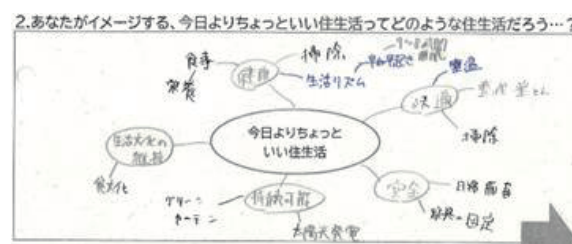 2.あなたがイメージする、今日よりちょっといい住生活ってどのような住生活だろう…?
今日よりちょっと
いい住生活
健康
食事
栄養
掃除
生活リズム
早寝早起き
睡眠
快適
室温
掃除
安全
日照
家具の固定
持続可能
グリーン
カーテン
太陽光発電
生活文化の
継承
食文化